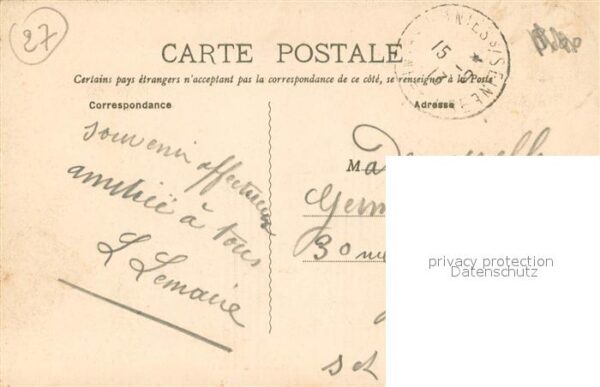 27
CARTE POSTALE
Certains pays étrangers n'acceptant pas la correspondance de ce côté, se renseigner à la Poste
15
Correspondance
Adresse
souvenir affectueux
amitié à tous
L Lemaire
M
30 rue
privacy protection
Datenschutz